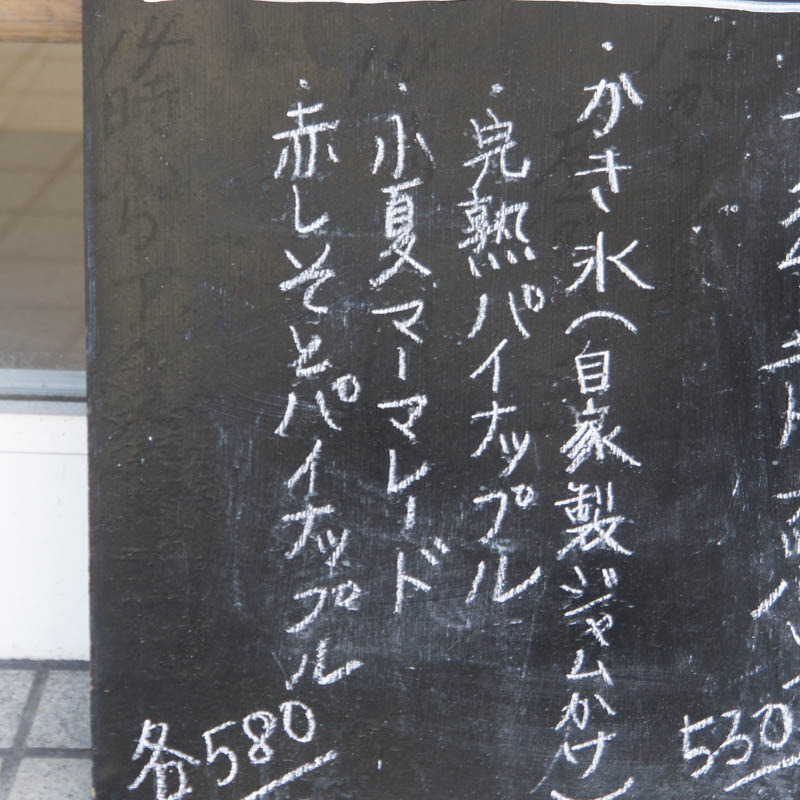 530
・かき氷(自家製ジャムかけ)
・完熟パイナップル
・小夏マーマレード
・赤しそとパイナップル
各580